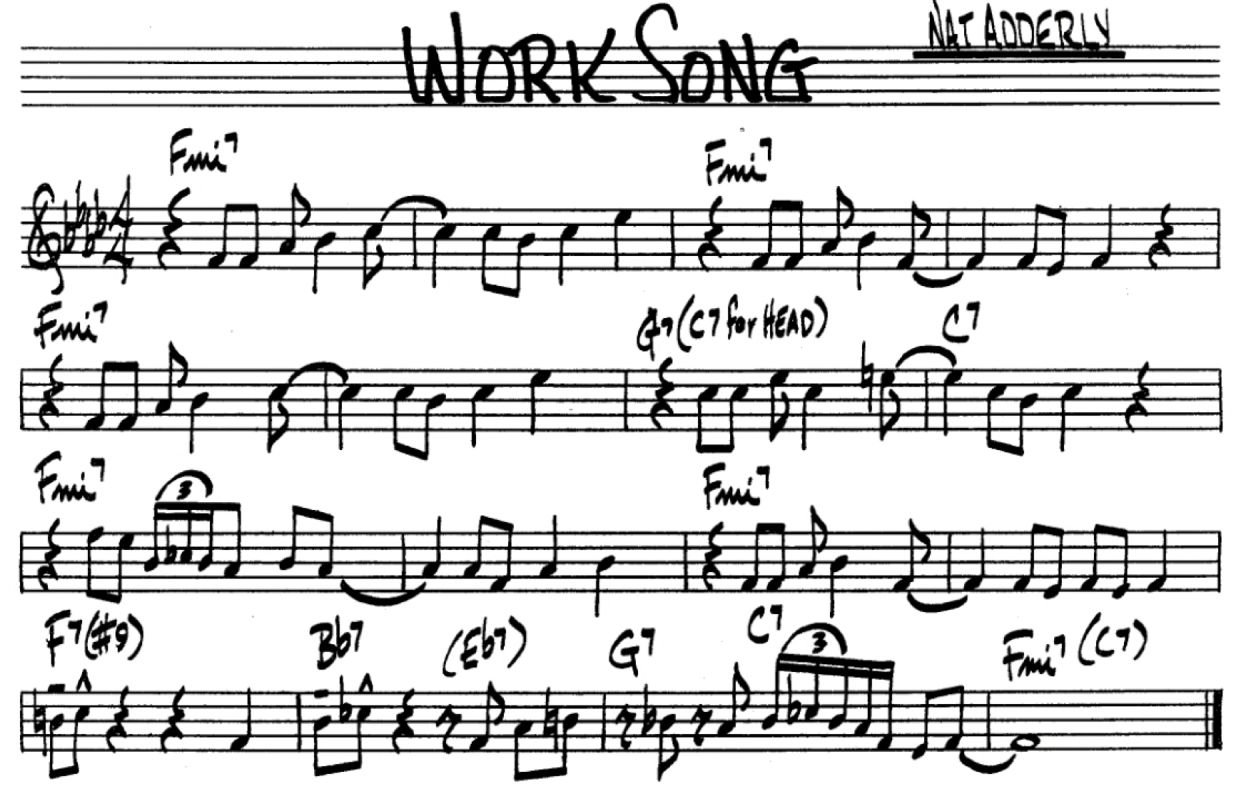 WORK SONG
NAT ADDERLY
Fmi7 Fmi7
Fmi7 G7 (C7 for HEAD) C7
Fmi7 3 Fmi7
F7(#9) Bb7 (Eb7) G7 C7 3 Fmi7 (C7)